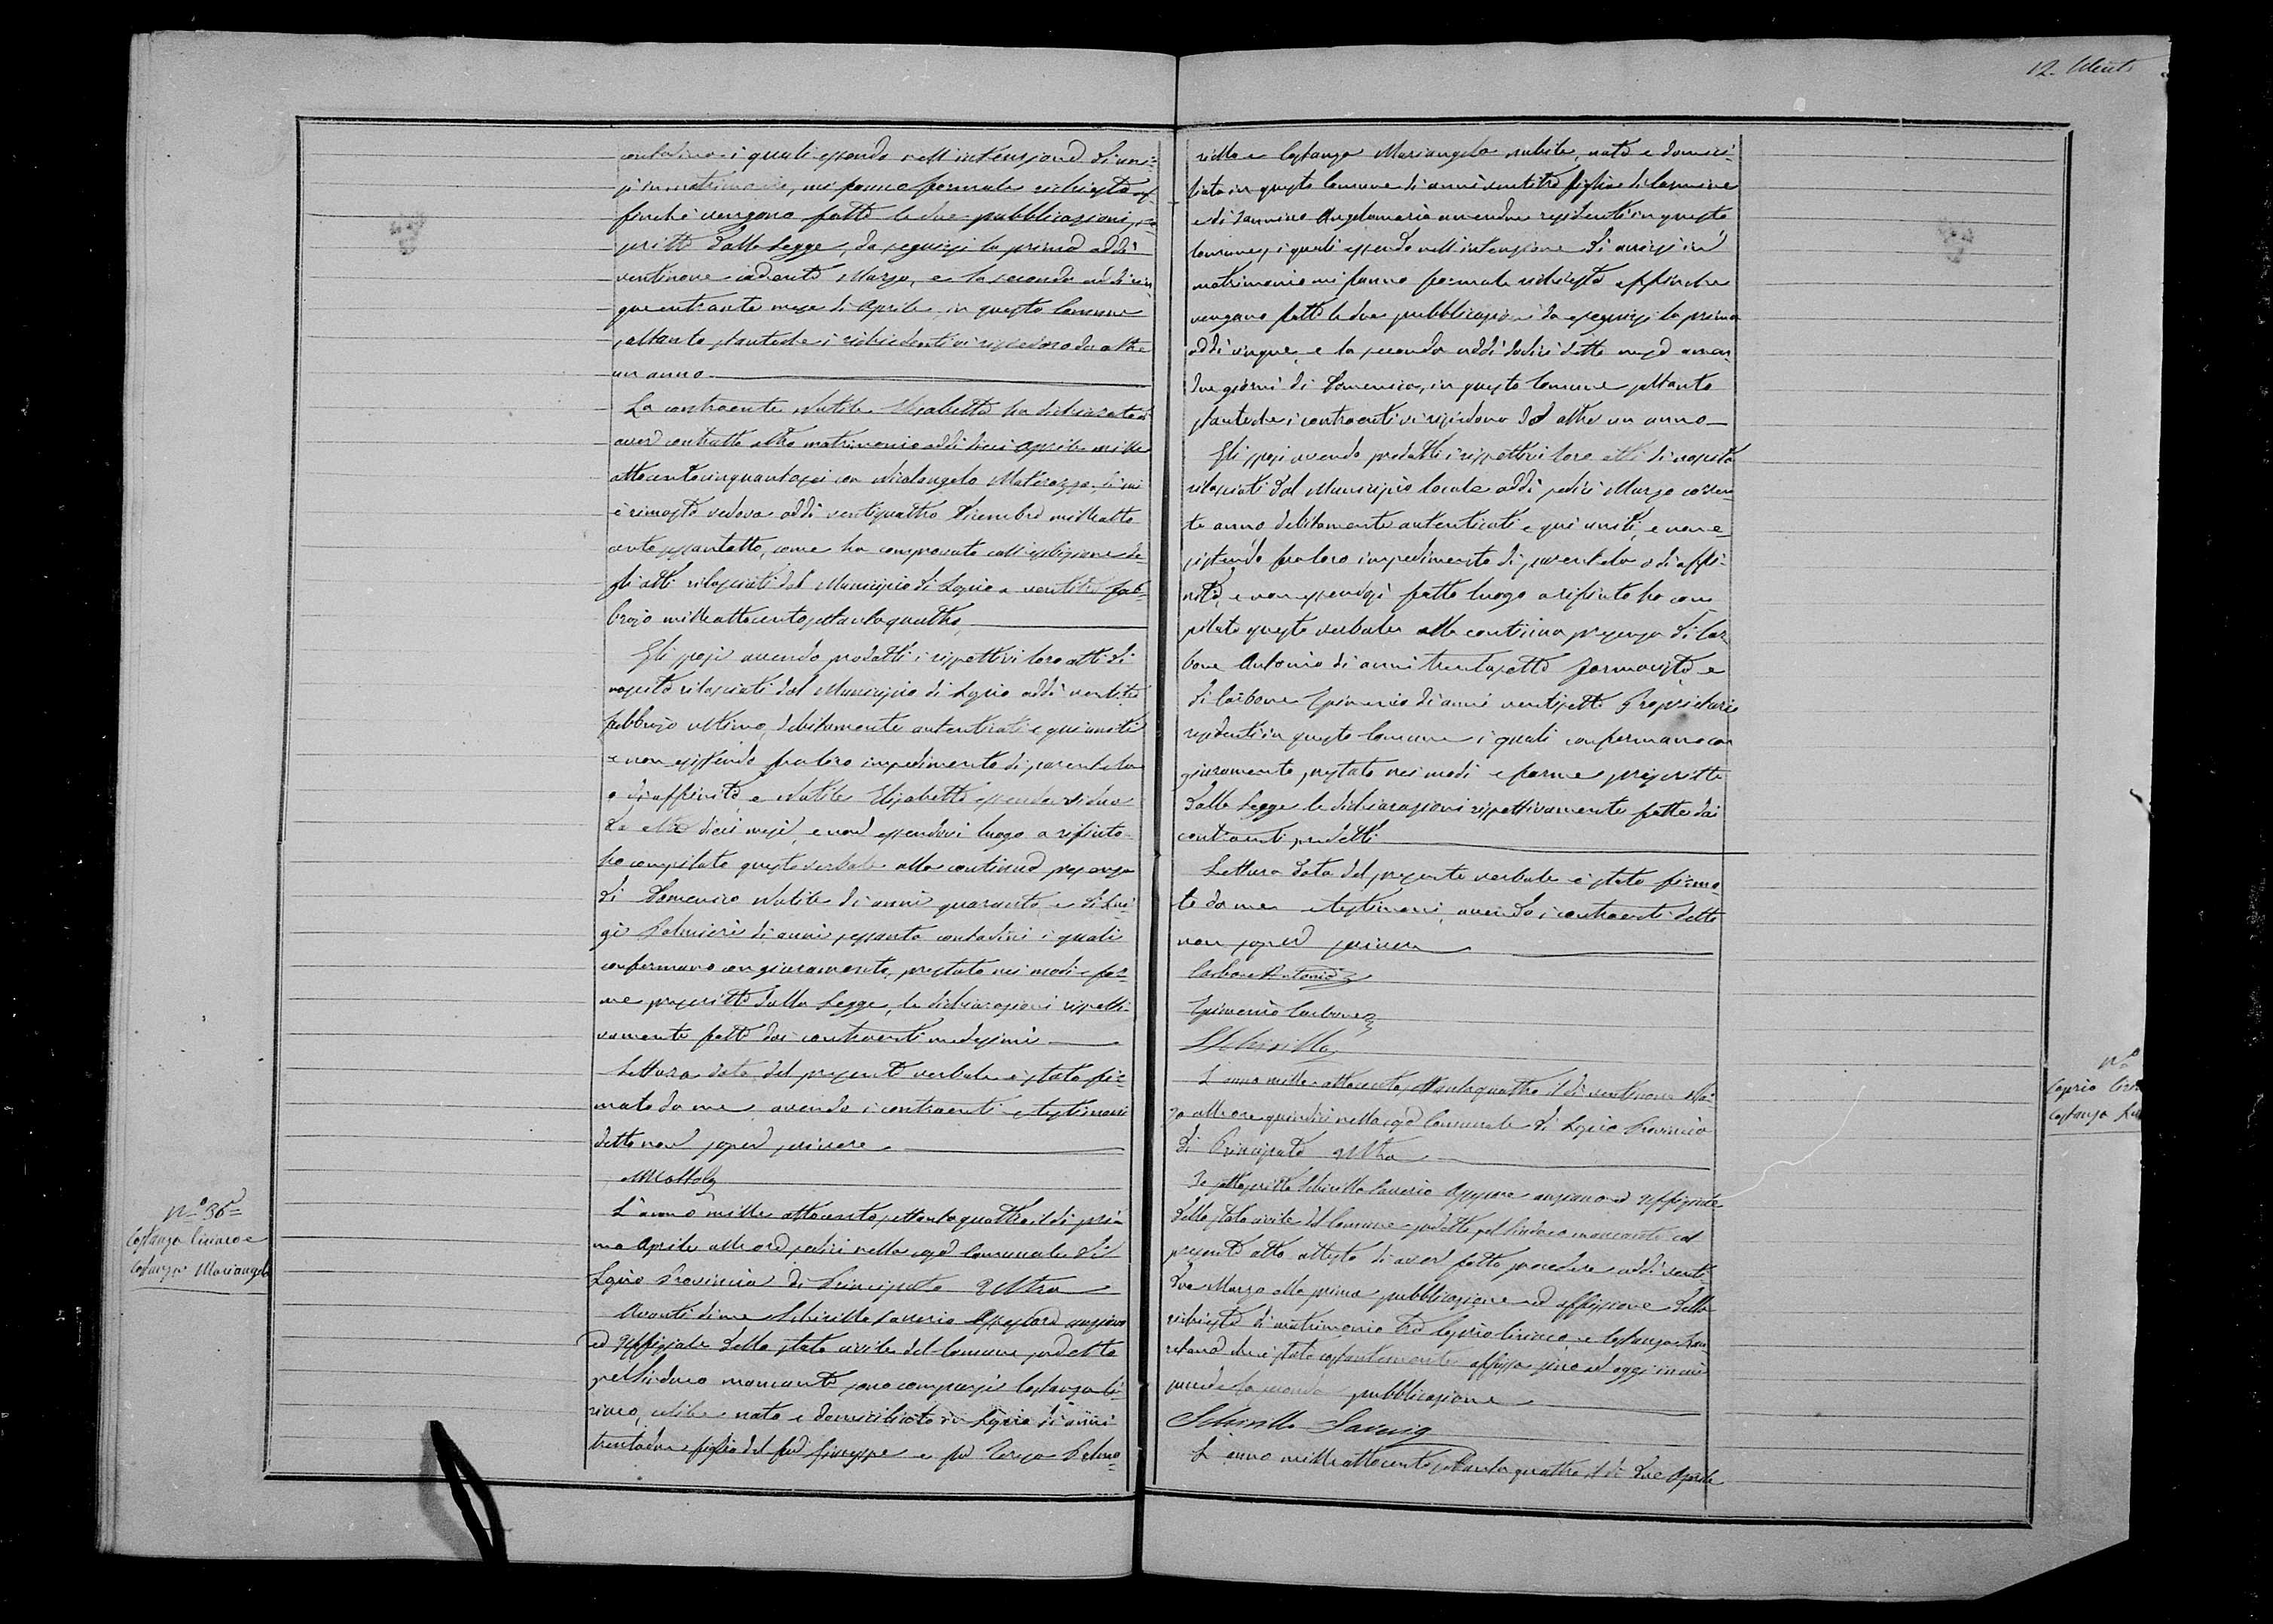 12.
contadina i quali essendo nell'intenzione di unir-
si in matrimonio, mi fanno formale richiesta af-
finchè vengano fatte le due pubblicazioni pre-
scritte dalla Legge, da eseguirsi la prima addì
ventinove cadente Marzo, e la seconda addì cin-
que entrante mese di Aprile, in questo Comune
soltanto stantechè i richiedenti vi risiedono da oltre
un anno
La contraente Natile Elisabetta ha dichiarato di
aver contratto altro matrimonio addì dieci Aprile mille
ottocentocinquantasei con Nicolangelo Materazzo, di cui
è rimasta vedova addì ventiquattro Dicembre milleotto
centosessantotto, come ha comprovato coll'esibizione de-
gli atti rilasciati dal Municipio di Lapio a ventitre Feb-
brajo milleottocentosettantaquattro
Gli sposi avendo prodotti i rispettivi loro atti di
nascita rilasciati dal Municipio di Lapio addì ventitre
Febbrajo ultimo, debitamente autenticati e qui uniti
e non esistendo fra loro impedimento di parentela
o di affinità e Natile Elisabetta essendo vedova
da oltre dieci mesi, e non essendovi luogo a rifiuto
ho compilato questo verbale alla continua presenza
di Domenico Natile di anni quaranta e di Lui-
gi Palmieri di anni sessanta contadini i quali
confermano con giuramento, prestato nei modi e for-
me prescritte dalla Legge, le dichiarazioni rispetti-
vamente fatte dai contraenti medesimi
Lettura data del presente verbale è stato fir-
mato da me avendo i contraenti e testimoni
detto non saper scrivere
L'anno mille ottocento settantaquattro il dì pri-
mo Aprile alle ore sedici nella casa Comunale di
Lapio Provincia di Principato Ultra
Avanti di me Schirillo Saverio Assessore anziano
ed Uffiziale dello stato civile del Comune suddetto
pel Sindaco mancante sono comparsi Costanza Ci-
riaco, celibe nato e domiciliato in Lapio di anni
trentadue figlio del fu Giuseppe e fu Teresa Palmo-
N.° 36
Costanza Ciriaco e
Costanza Mariangela
riello e Costanza Mariangela nubile, nata e domici-
liata in questo Comune di anni ventitre figlia di Carmine
e di Iannino Angelamaria amendue residenti in questo
Comune, i quali essendo nell'intenzione di unirsi in
matrimonio mi fanno formale richiesta affinchè
vengano fatte le due pubblicazioni da eseguirsi la prima
addì cinque, e la seconda addì dodici detto mese amen-
due giorni di Domenica, in questo Comune soltanto
stantechè i contraenti vi risiedono da oltre un anno
Gli sposi avendo prodotti i rispettivi loro atti di nascita
rilasciati dal Municipio locale addì sedici Marzo corren-
te anno debitamente autenticati e qui uniti, e non e-
sistendo fra loro impedimento di parentela o di affi-
nità, e non essendosi fatto luogo a rifiuto ho com
pilato questo verbale alla continua presenza di Car-
bone Antonio di anni trentasette Farmacista e
di Carbone Epimenio di anni ventisette Proprietario
residenti in questo Comune i quali confermano con
giuramento, prestato nei modi e forme prescritte
dalla Legge le dichiarazioni rispettivamente fatte dai
contraenti suddetti
Lettura data del presente verbale è stato firma-
to da me e testimoni avendo i contraenti detto
non saper scrivere
Carbone Antonio
Epimenio Carbone
Schirillo
L'anno mille ottocento settantaquattro il dì ventinove Mar-
zo alle ore quindici nella casa Comunale di Lapio Provincia
di Principato Ultra
Io sottoscritto Schirillo Saverio Assessore anziano ed Uffiziale
dello stato civile del Comune suddetto pel Sindaco mancante col
presente atto attesto di aver fatto procedere addì venti-
due Marzo alla prima pubblicazione ed affissione della
richiesta di matrimonio tra Caprio Ciriaco e Costanza
che è stata costantemente affissa sino ad oggi in cui
succede la seconda pubblicazione
Schirillo Saverio
L'anno milleottocentosettantaquattro il dì due Aprile
N.°
Caprio
Costanza